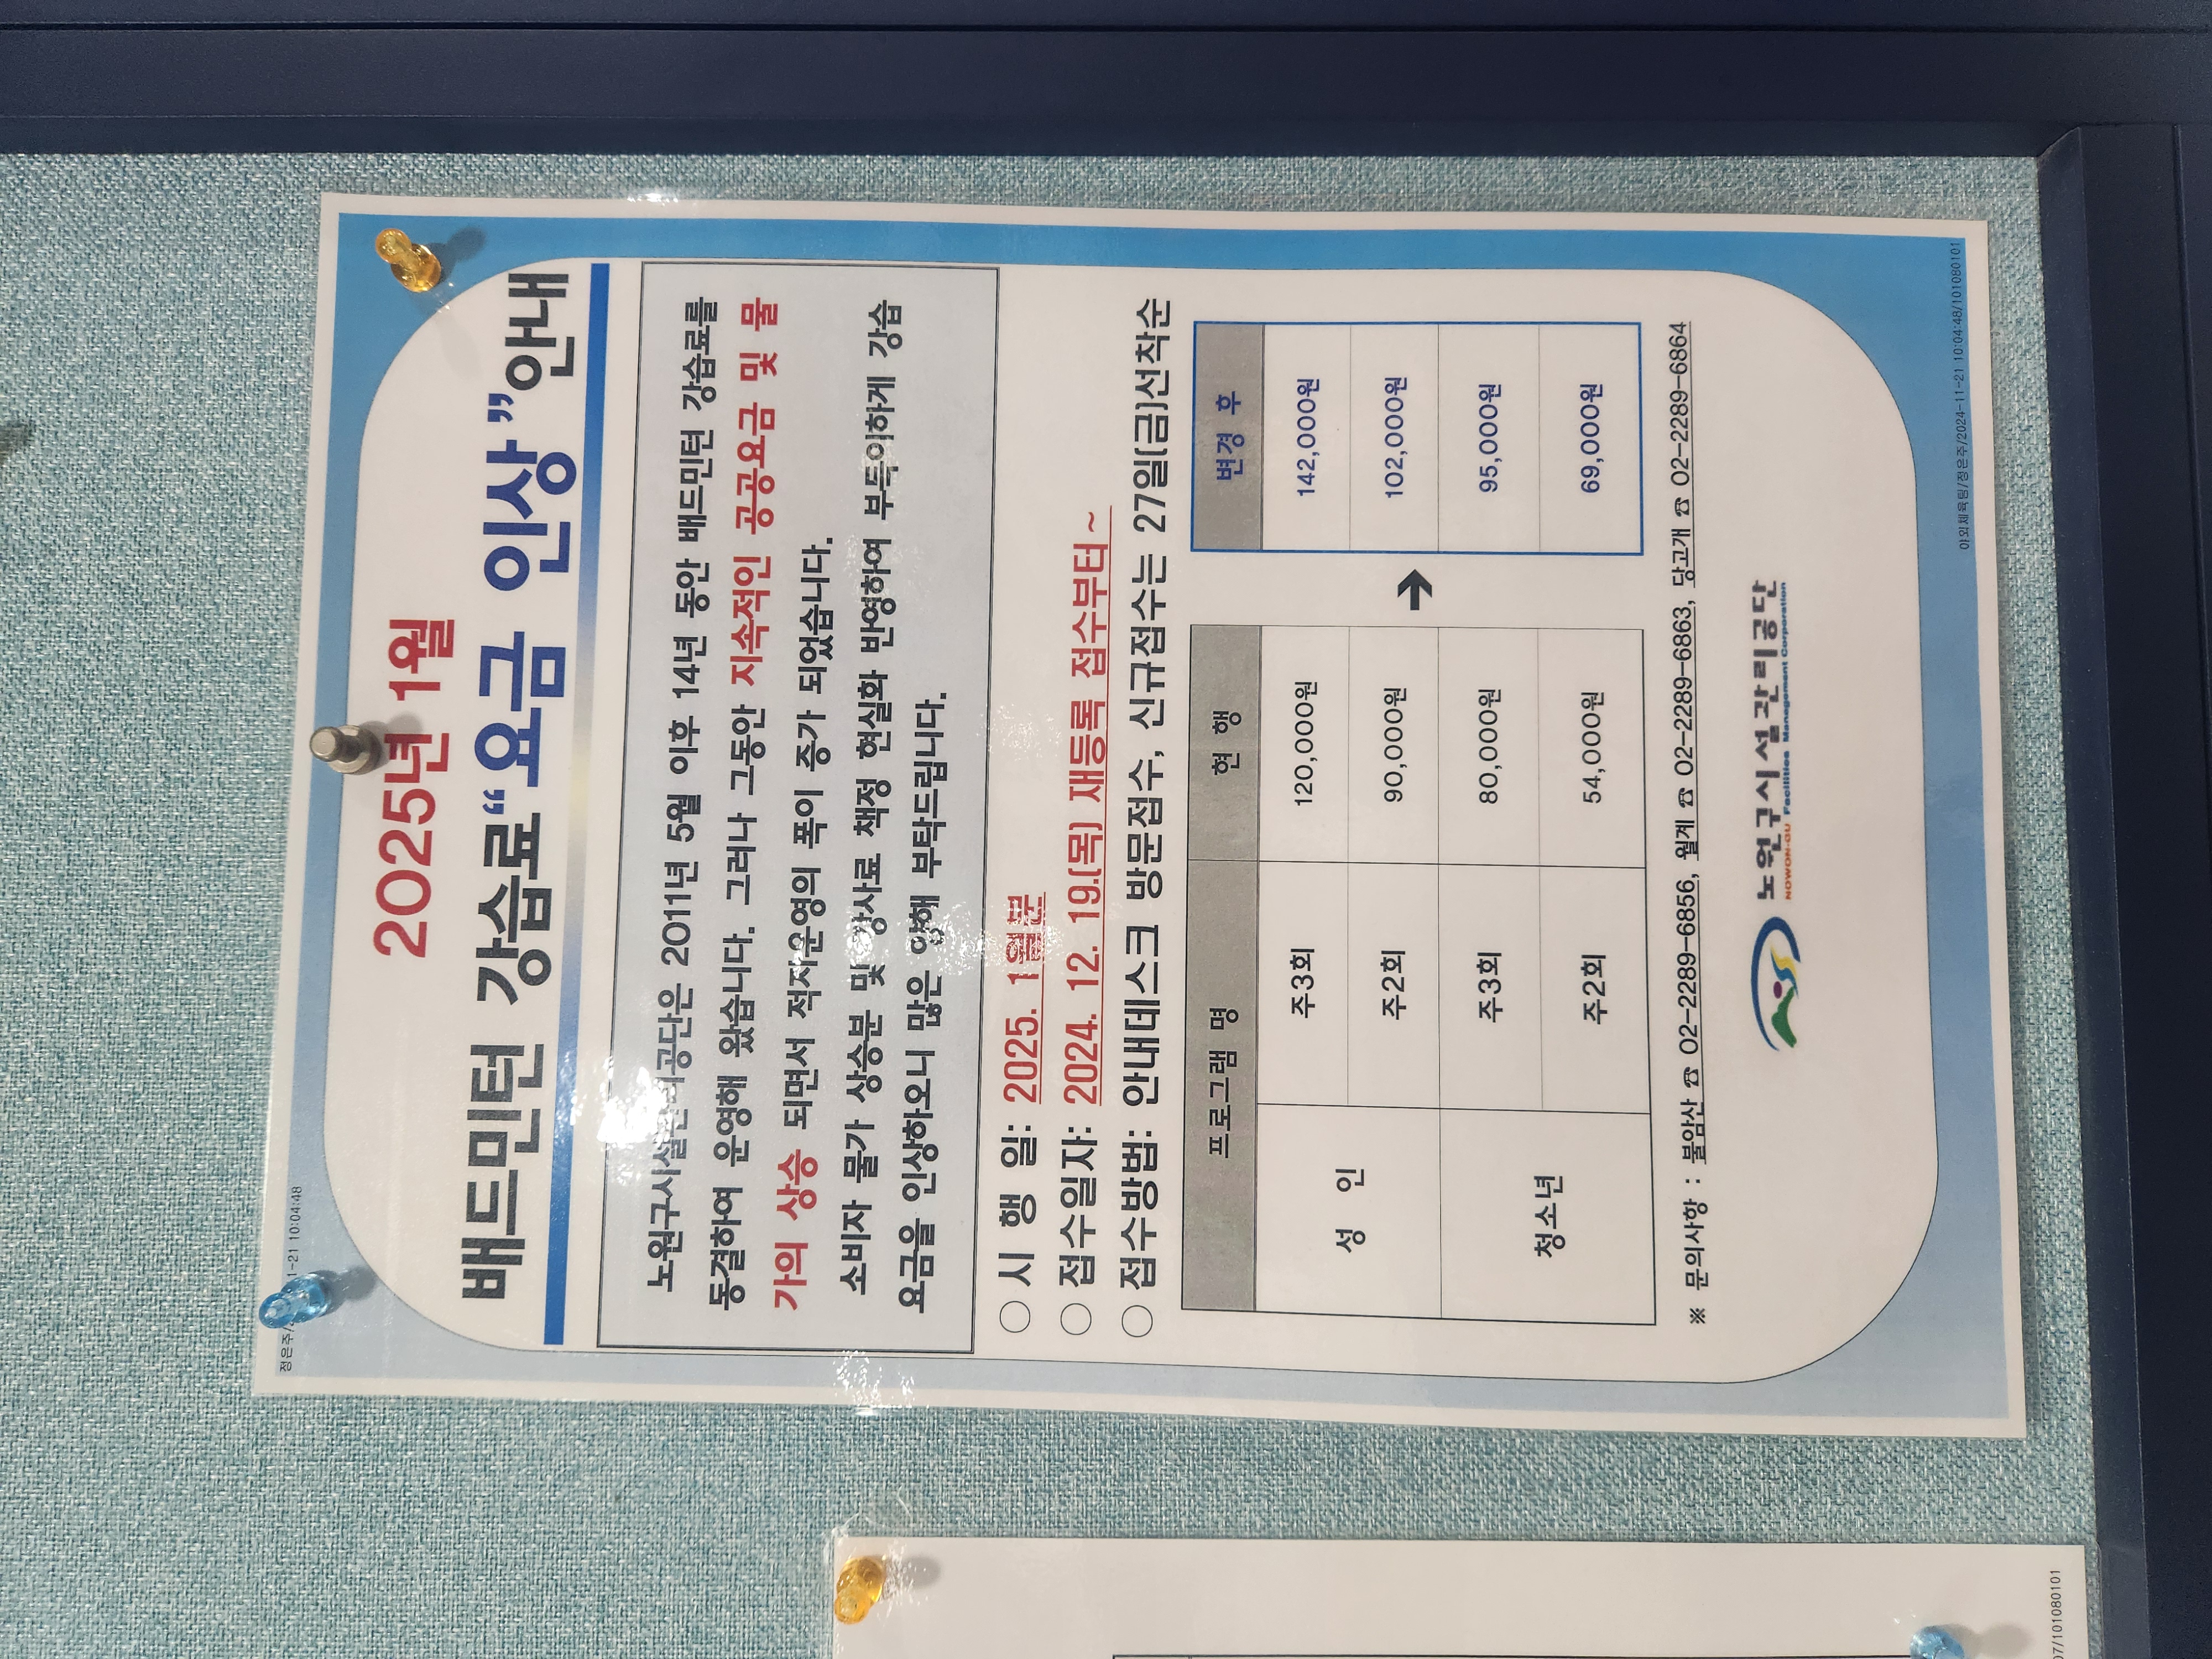 10:04:48
2025년 1월
배드민턴 강습료“요금 인상”안내
노원구시설관리공단은 2011년 5월 이후 14년 동안 배드민턴 강습료를
동결하여 운영해 왔습니다. 그러나 그동안 지속적인 공공요금 및 물
가의 상승 되면서 적자운영의 폭이 증가 되었습니다.
소비자 물가 상승분 및 강사료 책정 현실화 반영하여 부득이하게 강습
요금을 인상하오니 많은 양해 부탁드립니다.
○ 시 행 일: 2025. 1월분
○ 접수일자: 2024. 12. 19.(목) 재등록 접수부터~
○ 접수방법: 안내데스크 방문접수, 신규접수는 27일(금)선착순
프로그램 명 현 행 변경 후
성 인 주3회 120,000원 ➔ 142,000원
주2회 90,000원 102,000원
청소년 주3회 80,000원 95,000원
주2회 54,000원 69,000원
※ 문의사항 : 불암산 ☎ 02-2289-6856, 월계 ☎ 02-2289-6863, 당고개 ☎ 02-2289-6864
노원구시설관리공단
NOWON-GU Facilities Management Corporation
야외체육팀/정은주/2024-11-21 10:04:48/101080101
07/101080101